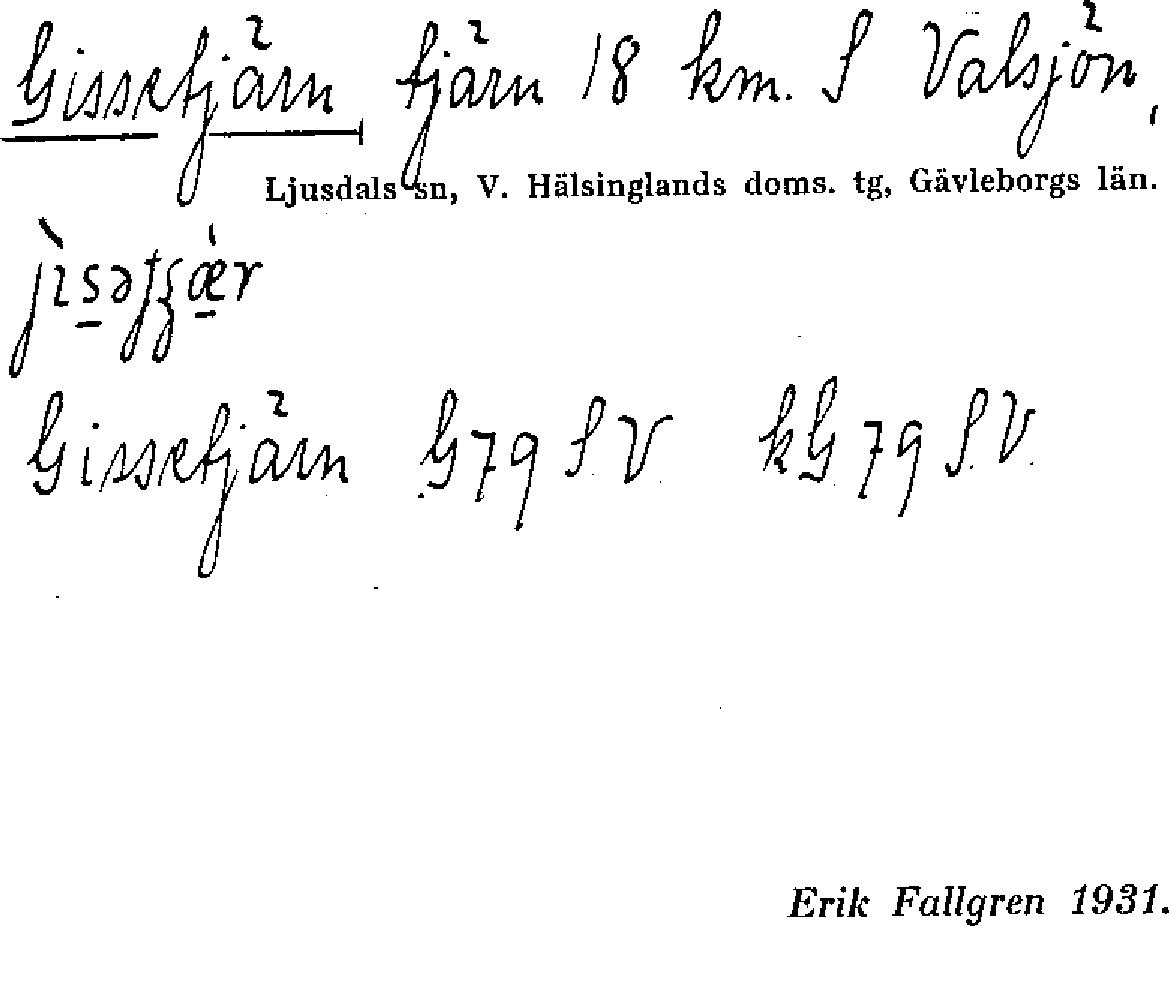 Gissetjärn tjärn 18 km. S Valsjön,
Ljusdals sn, V. Hälsinglands doms. tg, Gävleborgs län.
Gissetjärn G 79 S V kG 79 S. V.
Erik Fallgren 1931.